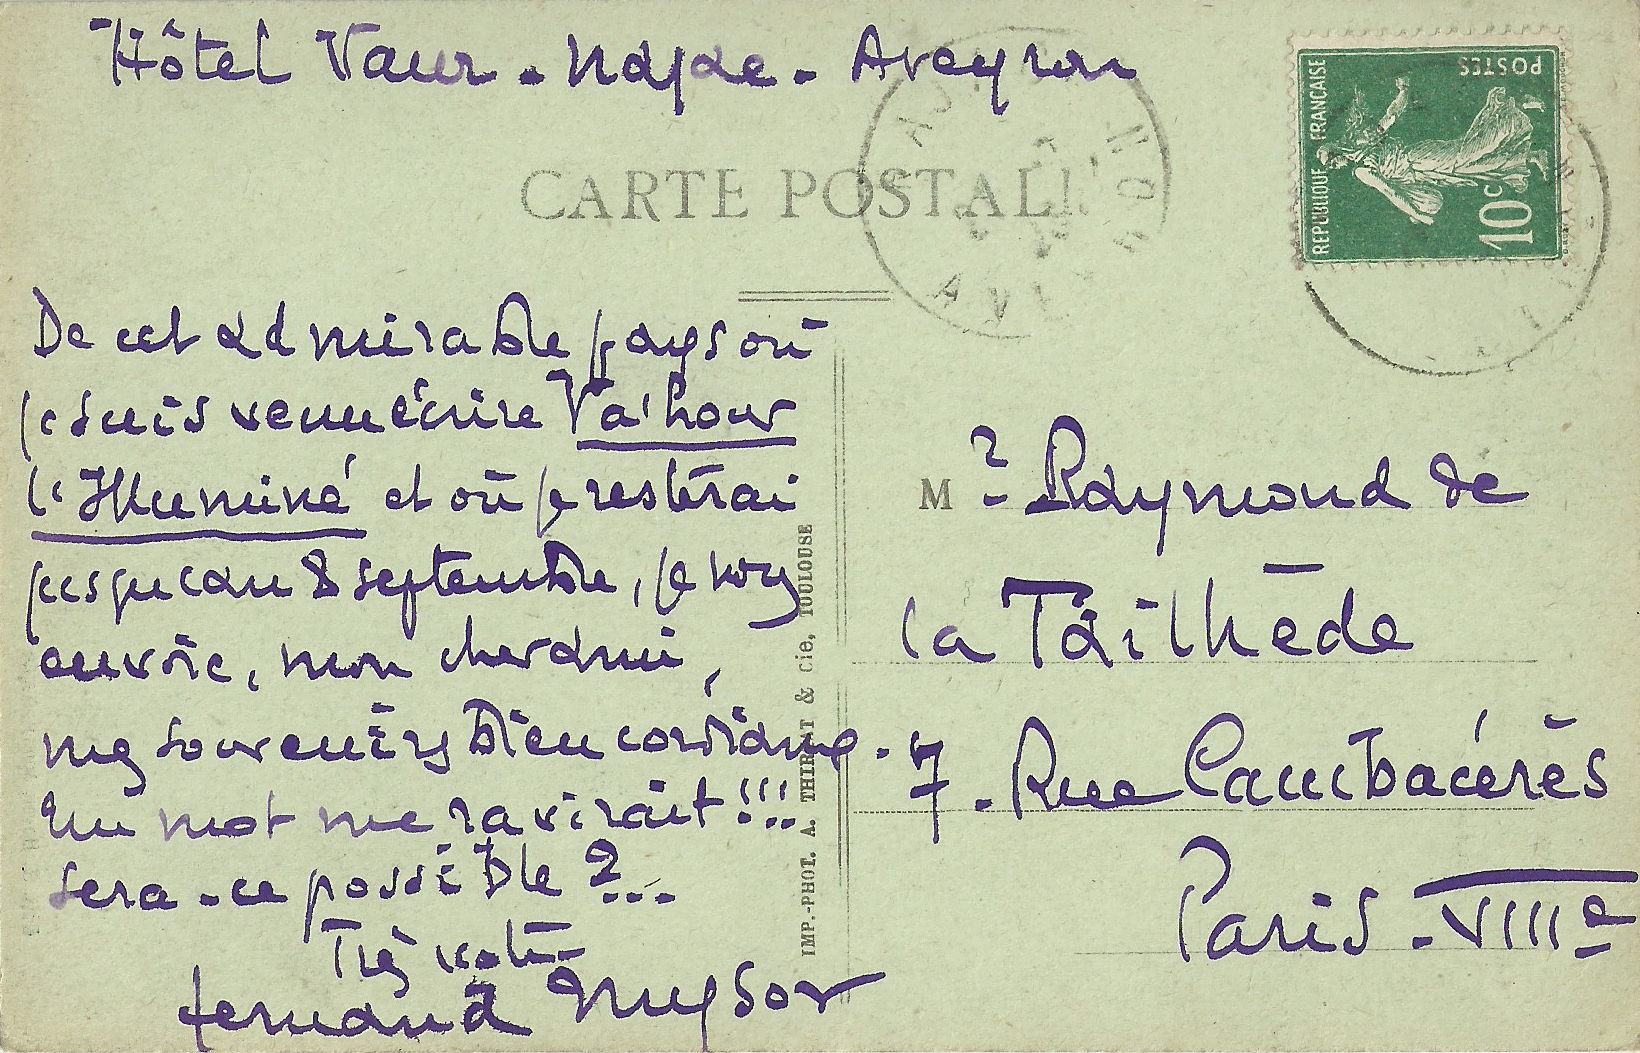 Hôtel Vaur - Najac - Aveyron
CARTE POSTALE
REPUBLIQUE FRANCAISE
POSTES
10c
AVEYRON
De cet admirable pays où
je suis venu écrire Valhour
l'Illuminé et où je resterai
jusqu'au 8 septembre, je vous
envoie, mon cher ami,
mes souvenirs bien cordiaux.
Un mot me ravirait !!!
Sera-ce possible ?...
Très vôtre
Fernand
IMP.-PHOT. A. THIRIAT & Cie, TOULOUSE
M r Raymond de
la Tailhède
7. Rue Cambacérès
Paris - VIIIe